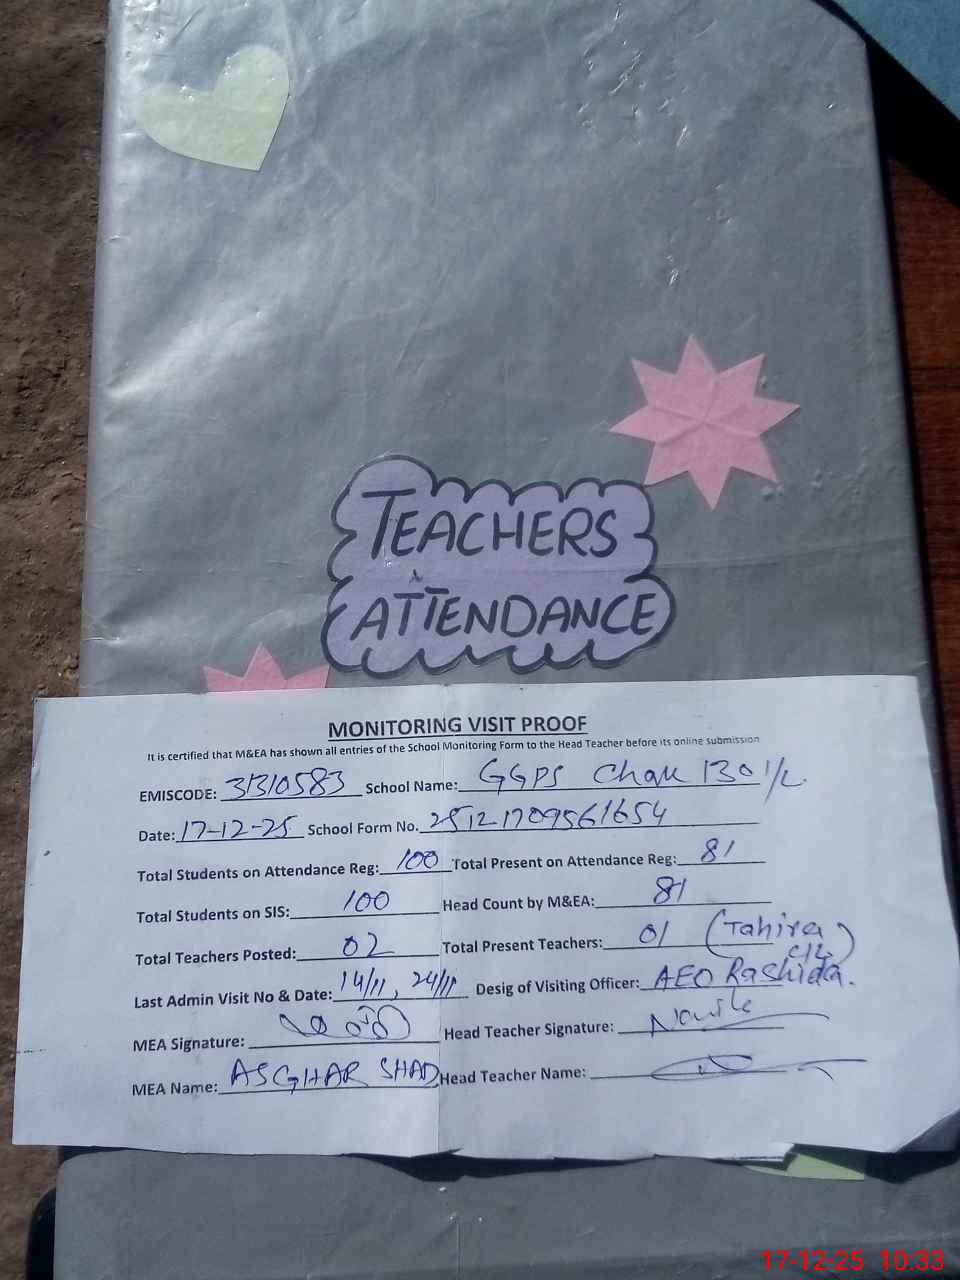 TEACHERS
ATTENDANCE
MONITORING VISIT PROOF
It is certified that M&EA has shown all entries of the School Monitoring Form to the Head Teacher before its online submission
EMISCODE: 31310583 School Name: GGPS Chak 130 1/L
Date: 17-12-25 School Form No. 25121709561654
Total Students on Attendance Reg: 100 Total Present on Attendance Reg: 81
Total Students on SIS: 100 Head Count by M&EA: 81
Total Teachers Posted: 02 Total Present Teachers: 01 (Tahira C/L)
Last Admin Visit No & Date: 14/11, 24/11 Desig of Visiting Officer: AEO Rashida.
MEA Signature: Head Teacher Signature:
MEA Name: ASGHAR SHAD Head Teacher Name:
17-12-25 10:33